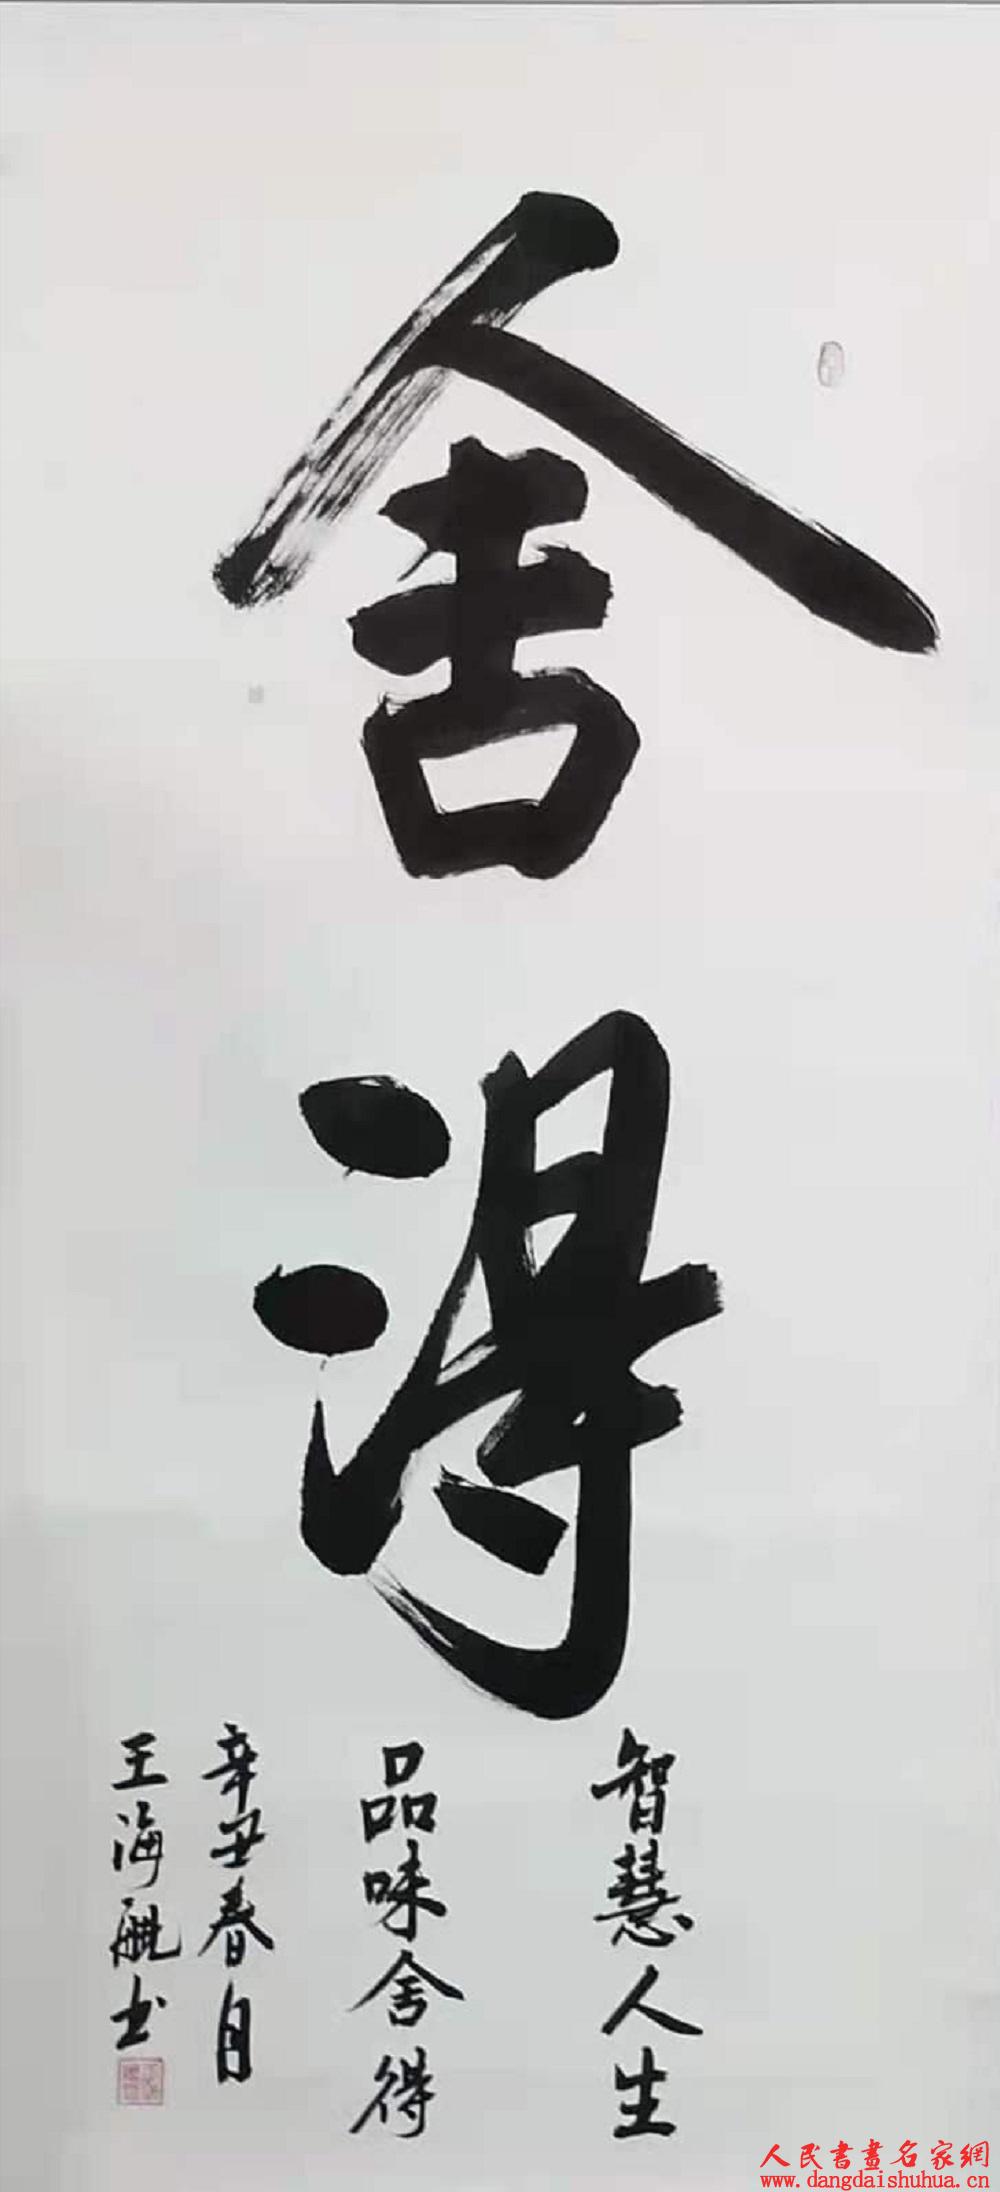 舍得
智慧人生
品味舍得
辛丑春自
王海航书
人民書畫名家網
www.dangdaishuhua.cn